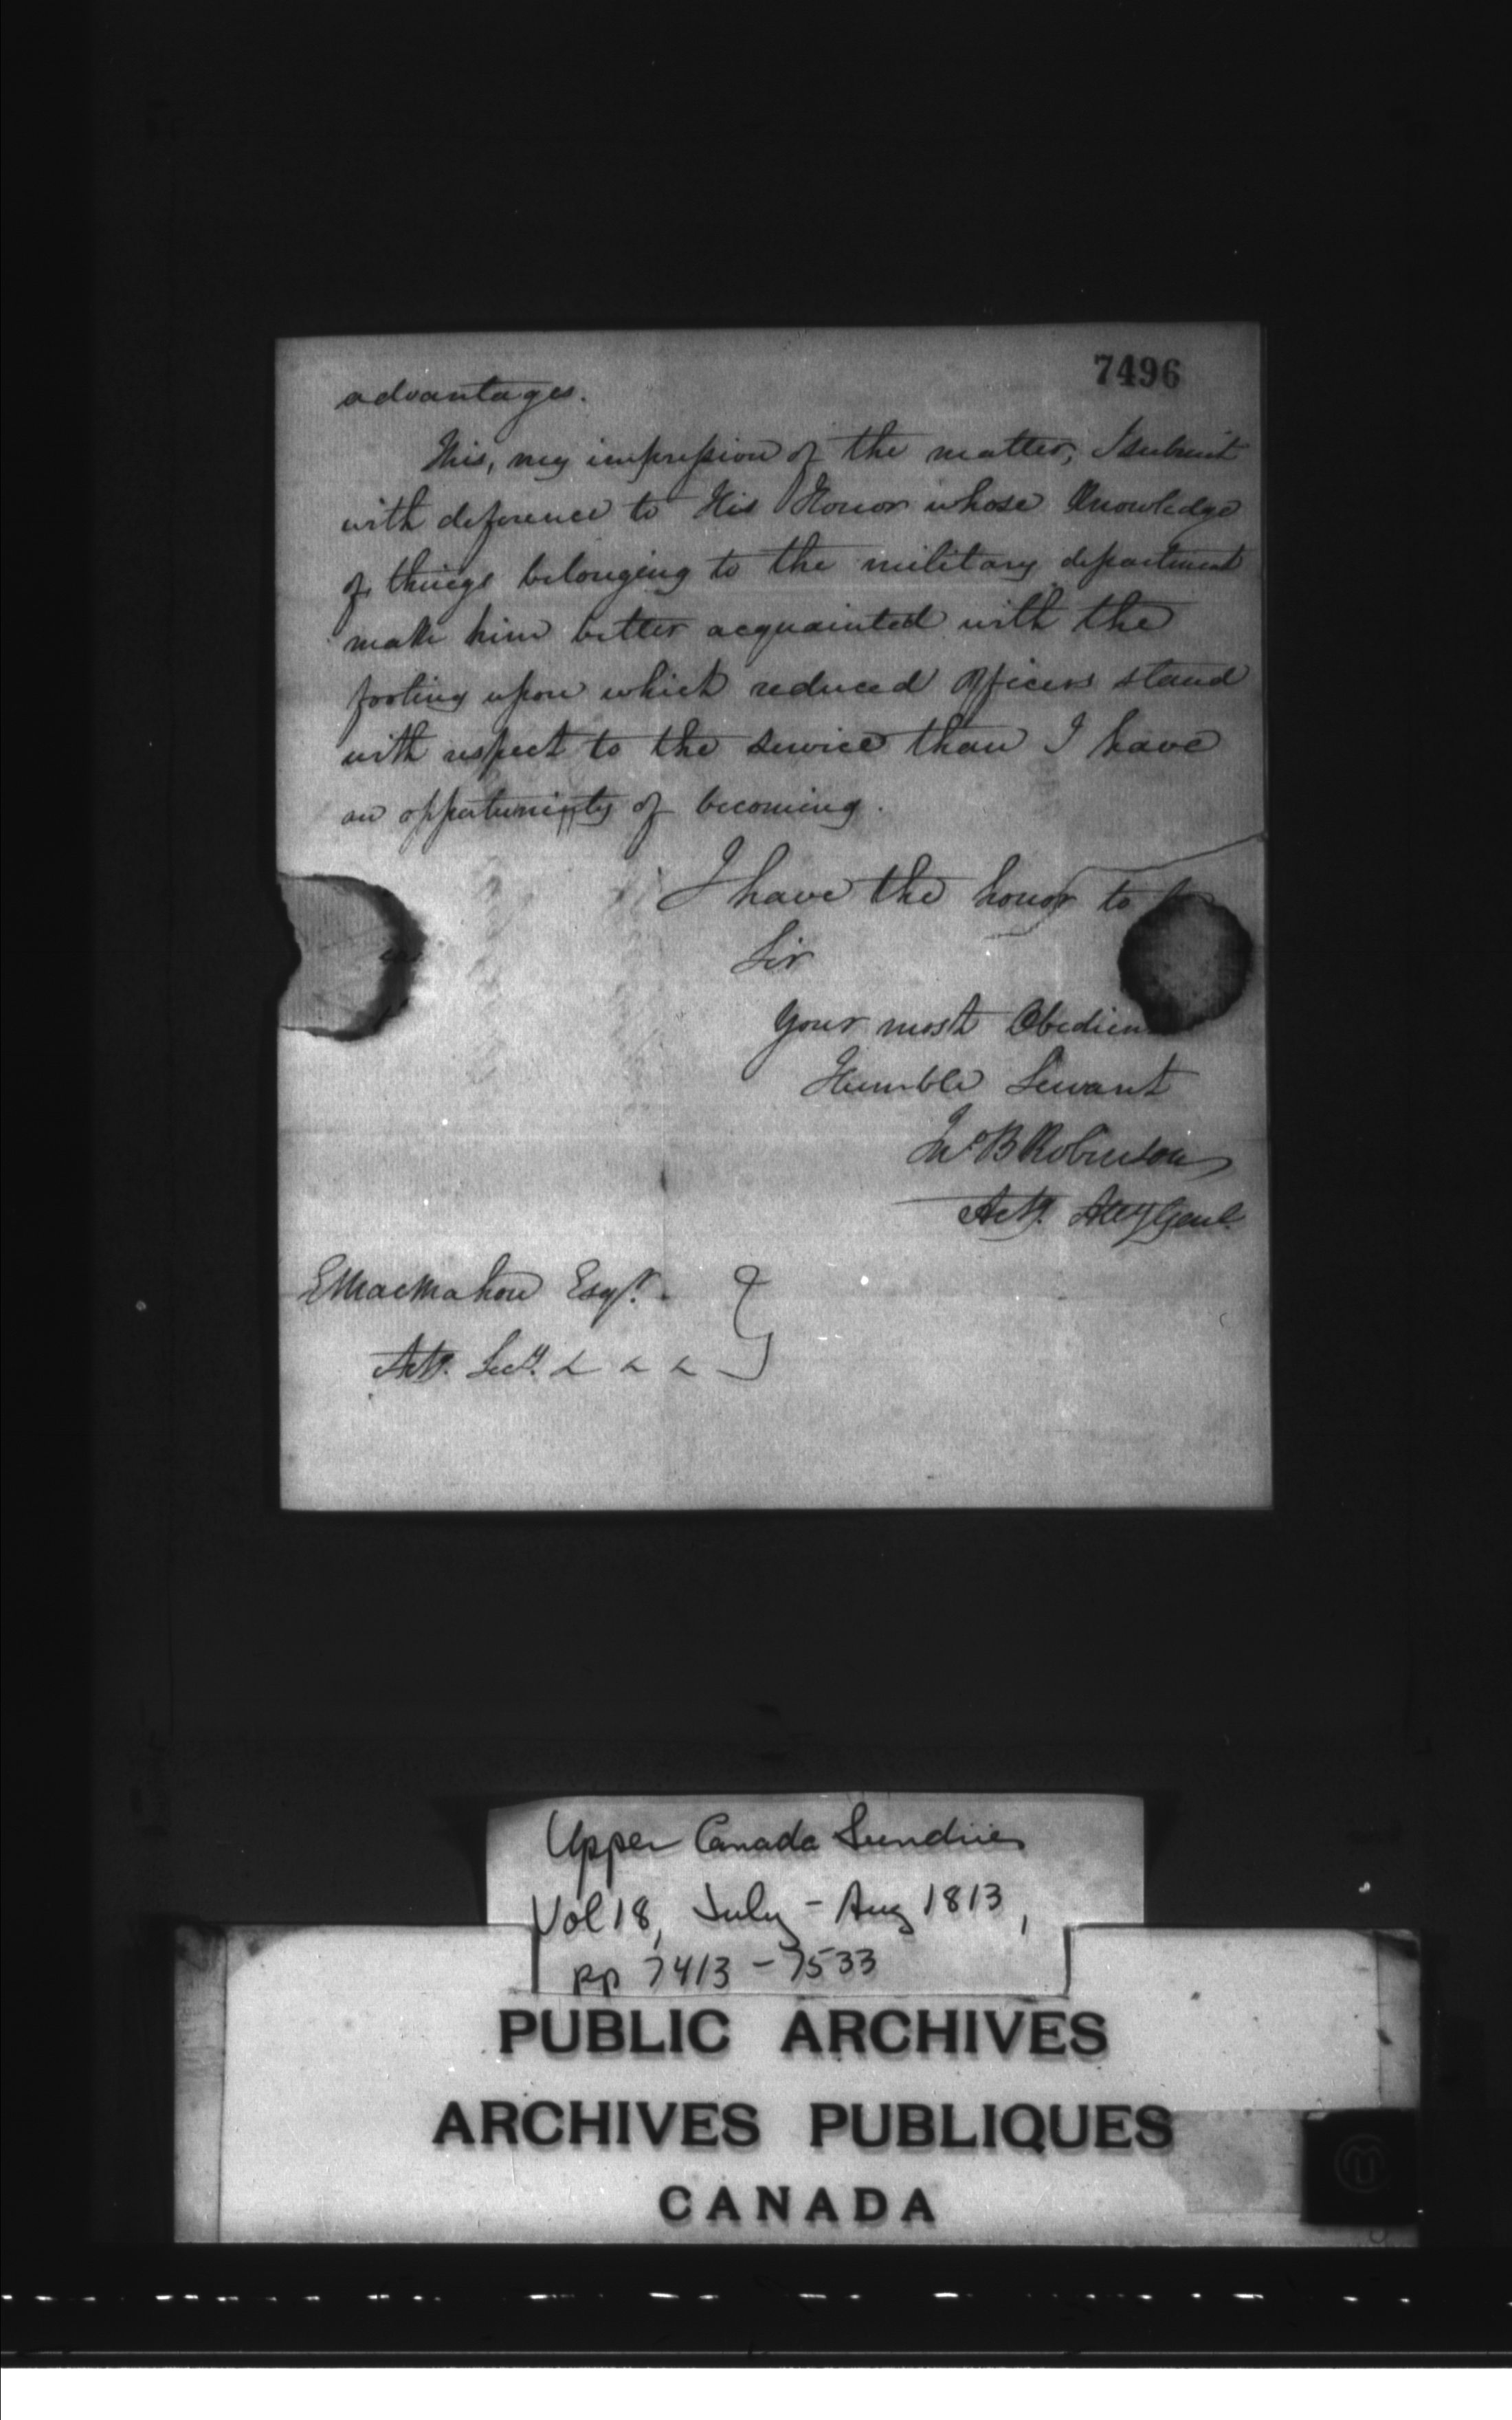 7496
advantages.
This, my impression of the matter, I submit
with deference to His Honor whose Knowledge
of things belonging to the military department
make him better acquainted with the
footing upon which reduced Officers stand
with respect to the service than I have
an opportunity of becoming.
I have the honor to
Sir
Your most Obedien
Humble Servant
Jno B Robinson
Actg. Atty Genl.
E MacMahon Esqr.
Actg. Secy. & & &
Upper Canada Sundries
Vol 18, July - Aug 1813,
pp 7413 - 7533
PUBLIC ARCHIVES
ARCHIVES PUBLIQUES
CANADA